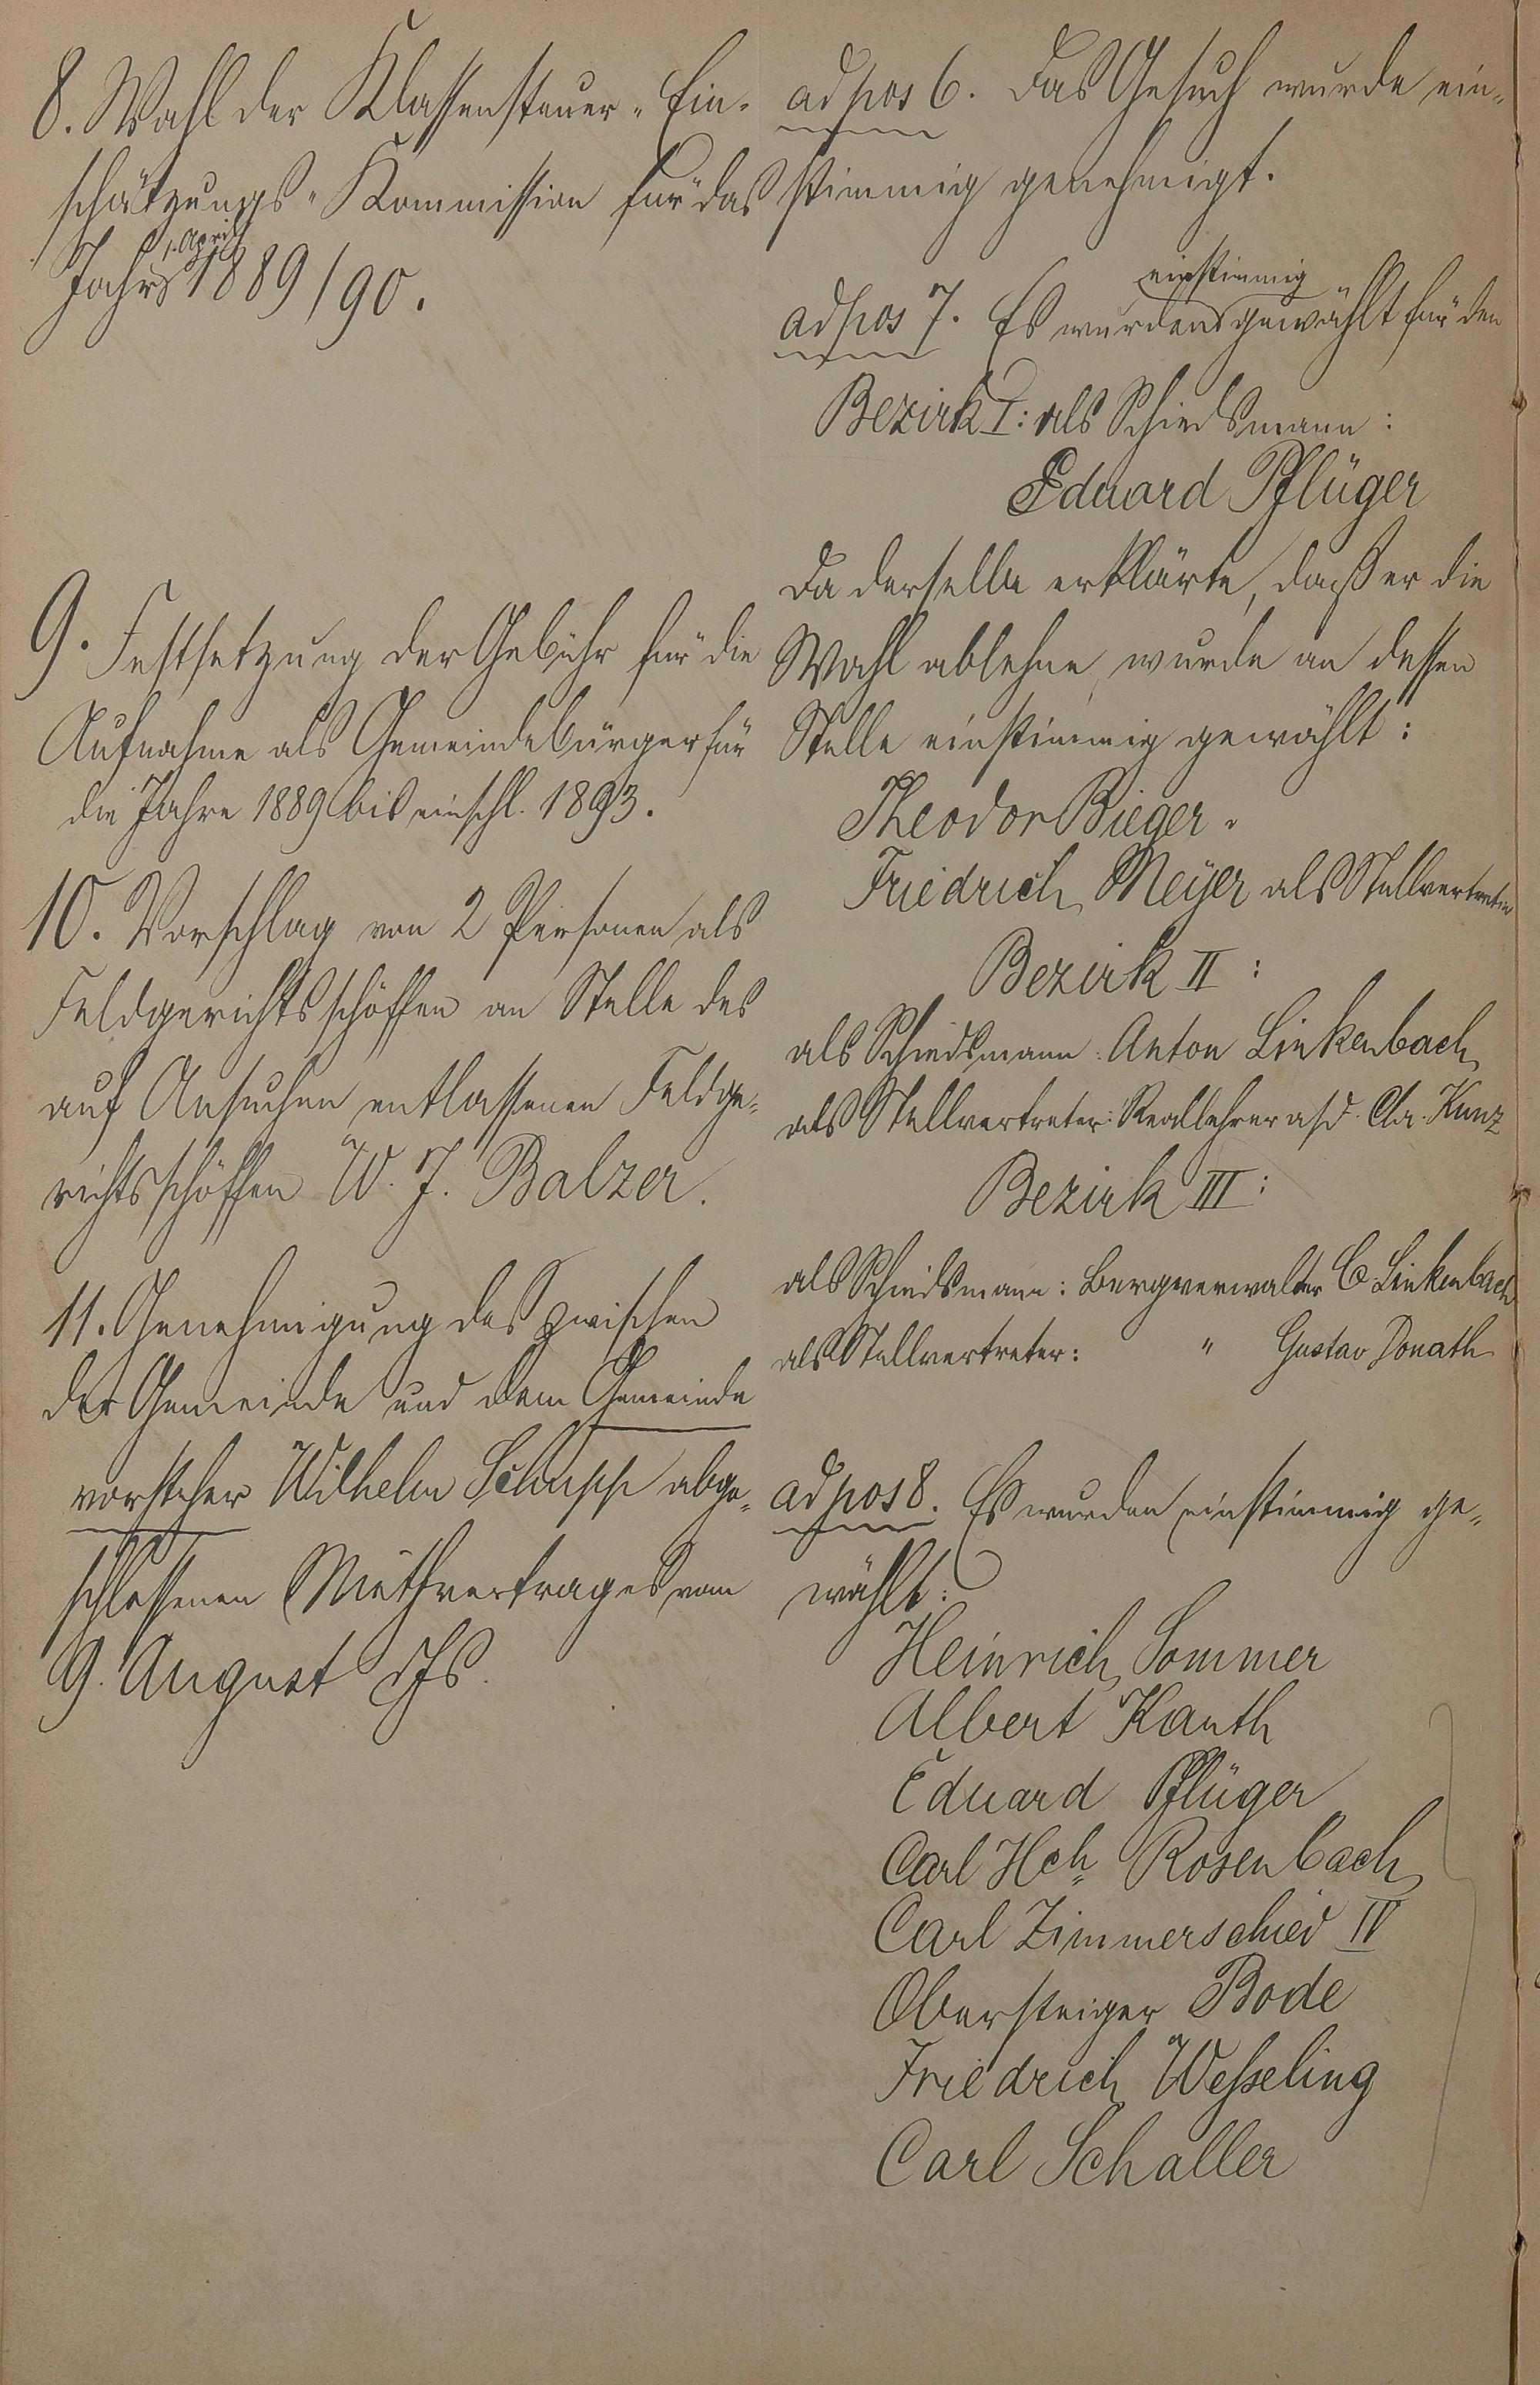 8. Wahl der Klassensteuer-Ein-
schätzungs-Kommission für das
1. April
Jahr 1889/90.
9. Festsetzung der Gebühr für die
Aufnahme als Gemeindebürger für
die Jahre 1889 bis einschl. 1893.
10. Vorschlag von 2 Personen als
Feldgerichtsschöffen an Stelle des
auf Ansuchen entlassenen Feldge-
richtsschöffen W. J. Balzer.
11. Genehmigung des zwischen
der Gemeinde und dem Gemeinde
vorsteher Wilhelm Schupp abge-
schlossenen Miethvertrages vom
9. August d Js.
ad pos 6. Das Gesuch wurde ein-
stimmig genehmigt.
einstimmig
ad pos 7. Es wurden gewählt für den
Bezirk I: als Schiedsmann:
Eduard Pflüger
Da derselbe erklärte, daß er die
Wahl ablehne, wurde an dessen
Stelle einstimmig gewählt:
Theodor Bieger.
Friedrich Meyer als Stellvertreter
Bezirk II:
als Schiedsmann: Anton Linkenbach
als Stellvertreter: Reallehrer a/D. Chr. Kunz
Bezirk III:
als Schiedsmann: Bergverwalter C Linkenbach
als Stellvertreter: " Gustav Donath
ad pos 8. Es wurden einstimmig ge-
wählt:
Heinrich Sommer
Albert Kauth
Eduard Pflüger
Carl Hch Rosenbach
Carl Zimmerschied IV
Obersteiger Bode
Friedrich Weßeling
Carl Schaller